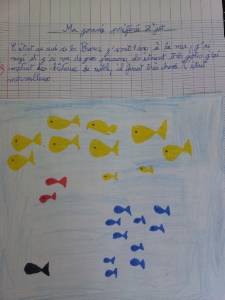 Ma journée préférée d'été
C'était au sud de la France, j'avais 7 ans à la mer, j'ai
nagé et j'ai vu de gros poissons, ils étaient très
des châteaux de sable, il faisait très chaud c'était
merveilleux